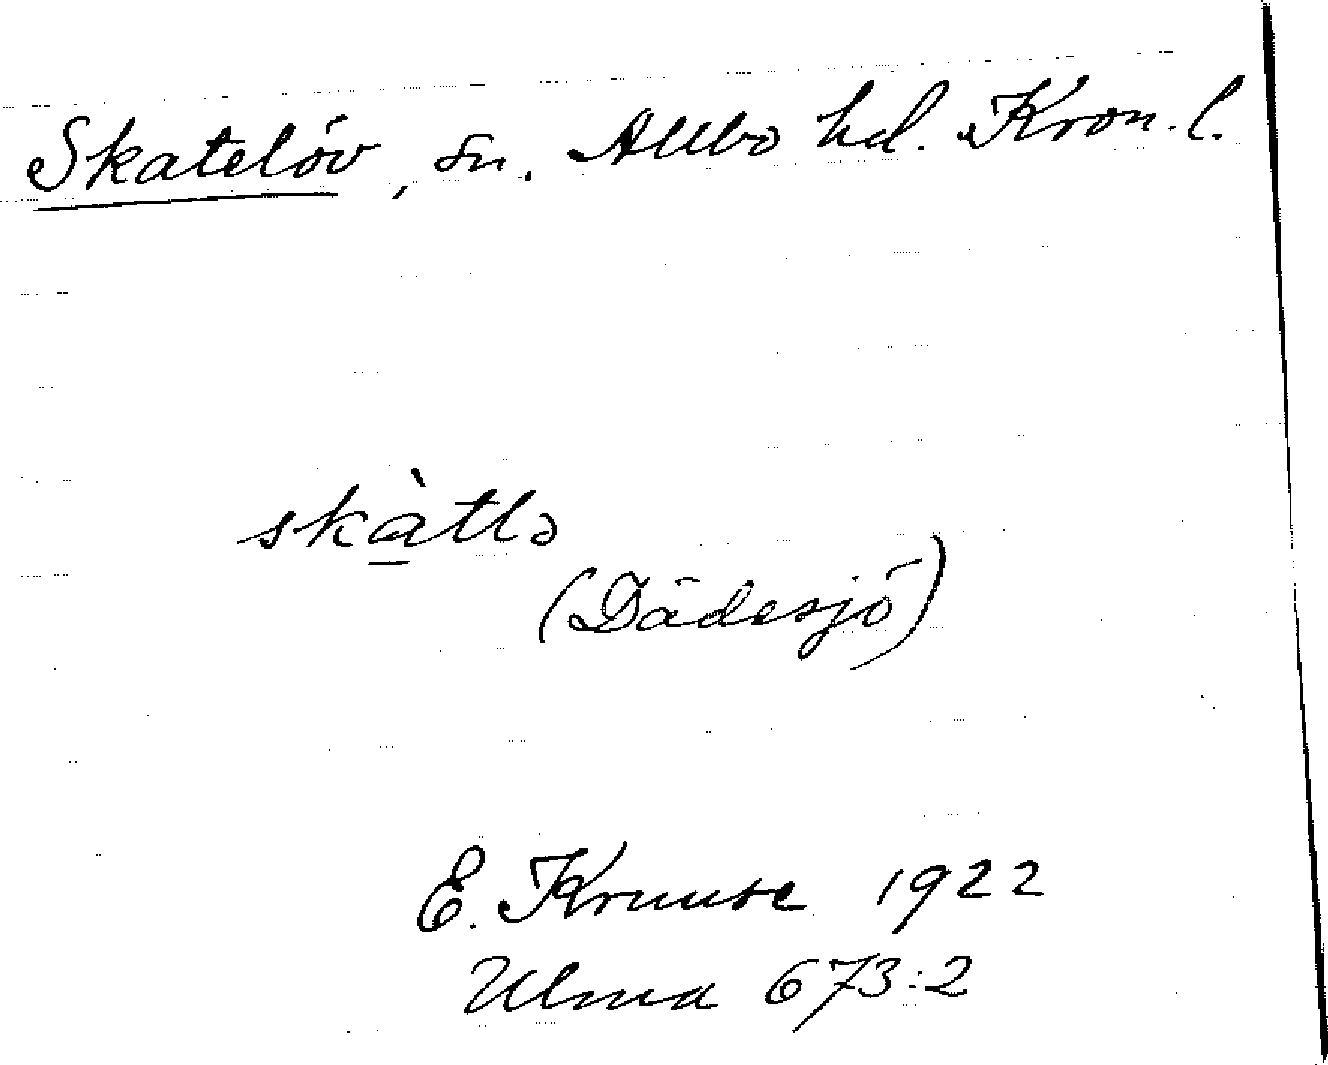 Skatelöv, sn. Allbo hd. Kron. l.
skà̱tlə
(Dädesjö)
E. Kruuse 1922
Ulma 673:2